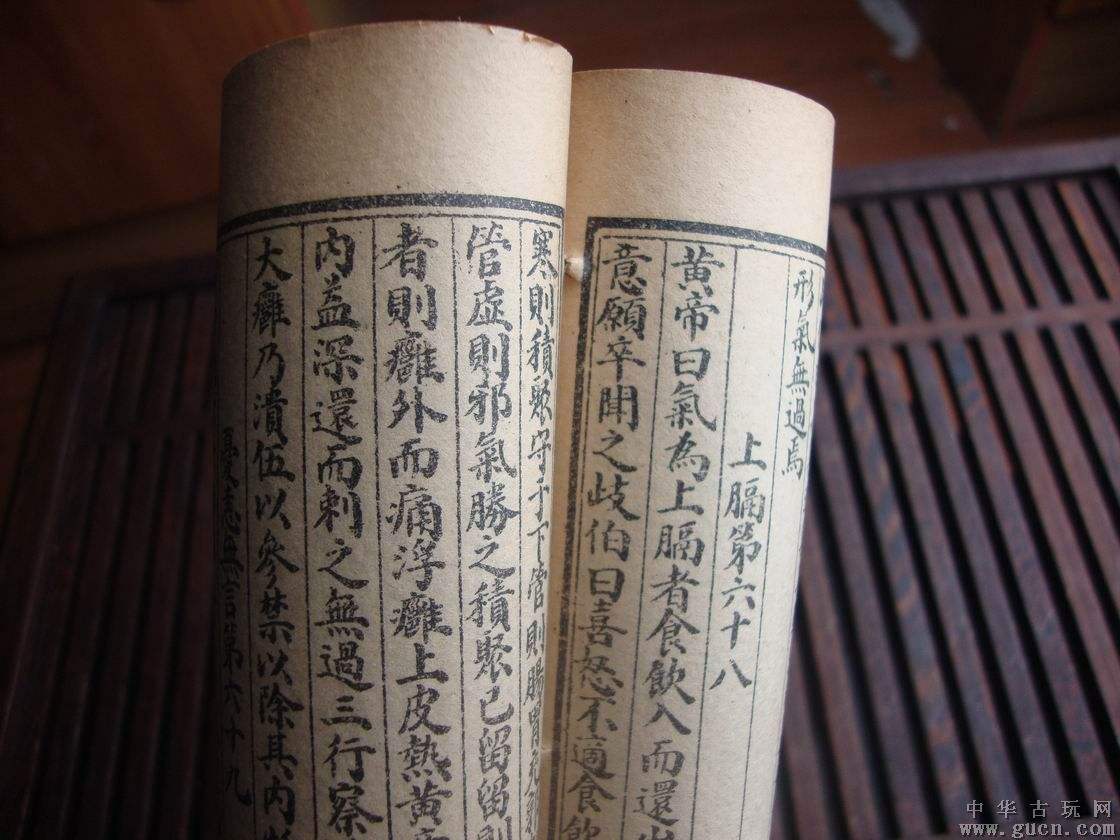 形氣無過焉
上膈第六十八
黃帝曰氣為上膈者食飲入而還出
意願卒聞之歧伯曰喜怒不適食飲
寒則積聚守于下管則腸胃充郭
管虛則邪氣勝之積聚已留留則
者則癰外而痛浮癰上皮熱黃帝
內益深還而刺之無過三行察
大癰乃潰伍以參禁以除其內
憂恚無言第六十九
中华古玩网
www.gucn.com